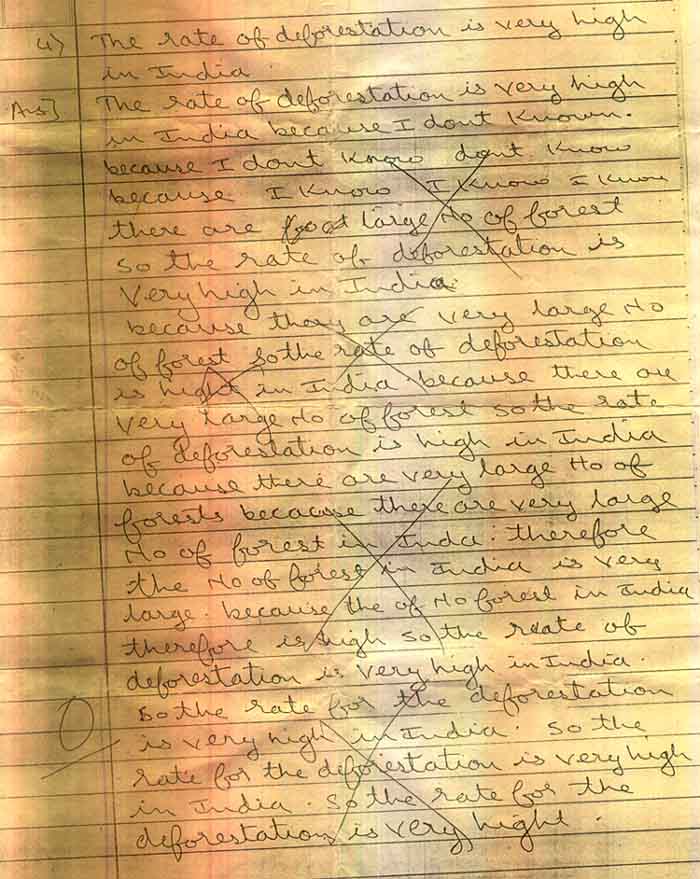 4) The rate of deforestation is very high
in India.
Ans] The rate of deforestation is very high
in India because I dont Known.
because I dont know dont know
because I Know I Know I Know
there are large No of forest
so the rate of deforestation is
very high in India.
because they are very large No
of forest so the rate of deforestation
is hight in India. because there are
very large No of forest so the rate
of deforestation is high in India
because there are very large No of
forests because there are very large
No of forest in India. therefore
the No of forest in India is very
large. because the of No forest in India
therefore is high so the rate of
deforestation is very high in India.
So the rate for the deforestation
0 is very high in India. So the
rate for the deforestation is very high
in India. So the rate for the
deforestation is very hight.